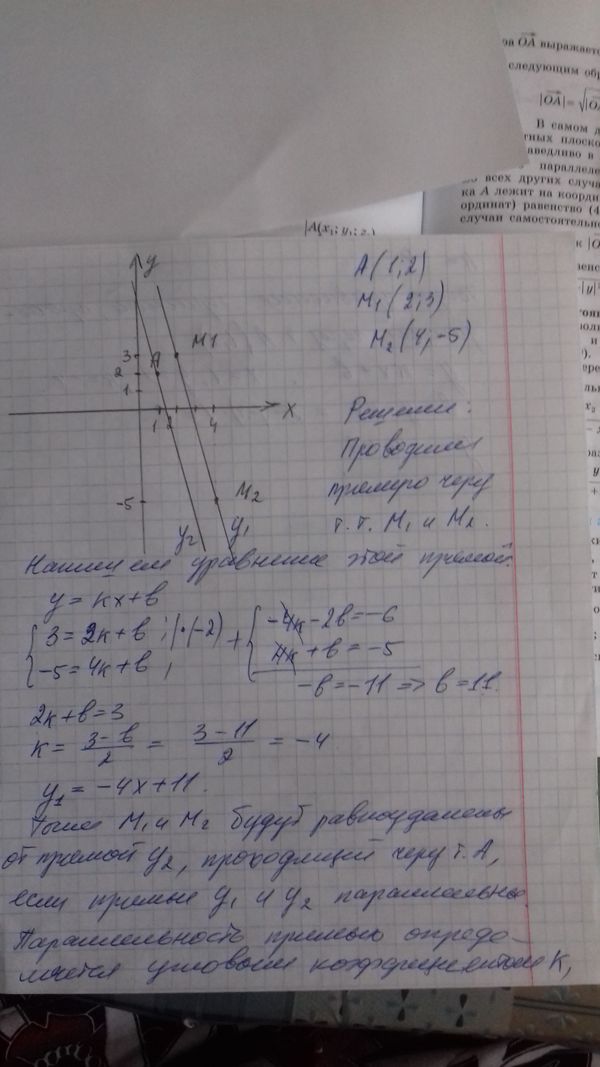 ра OA выражается
следующим обр
|OA|=√|O
В самом д
тных плоско
аведливо в
параллеле
во всех других случа
ка A лежит на коорди
ординат) равенство (4
случаи самостоятельно
|A(x₁; y₁; z₁)
y
A(1;2)
M₁(2;3)
M₂(4,-5)
3
2
1
A
M1
1 2 4
x
-5
M2
y₂
y₁
Решение:
Проводим
прямую через
т.т. M₁ и M₂.
Напишем уравнение этой прямой.
y=kx+b
{ 3=2k+b ; |·(-2) + { -4k-2b=-6
{ -5=4k+b , 4k+b=-5
-b=-11 => b=11.
2k+b=3
k= (3-b)/2 = (3-11)/2 = -4
y₁=-4x+11.
Точки M₁ и M₂ будут равноудалены
от прямой y₂, проходящей через т. A,
если прямые y₁ и y₂ параллельны.
Параллельность прямых опреде-
ляется угловым коэффициентом k,